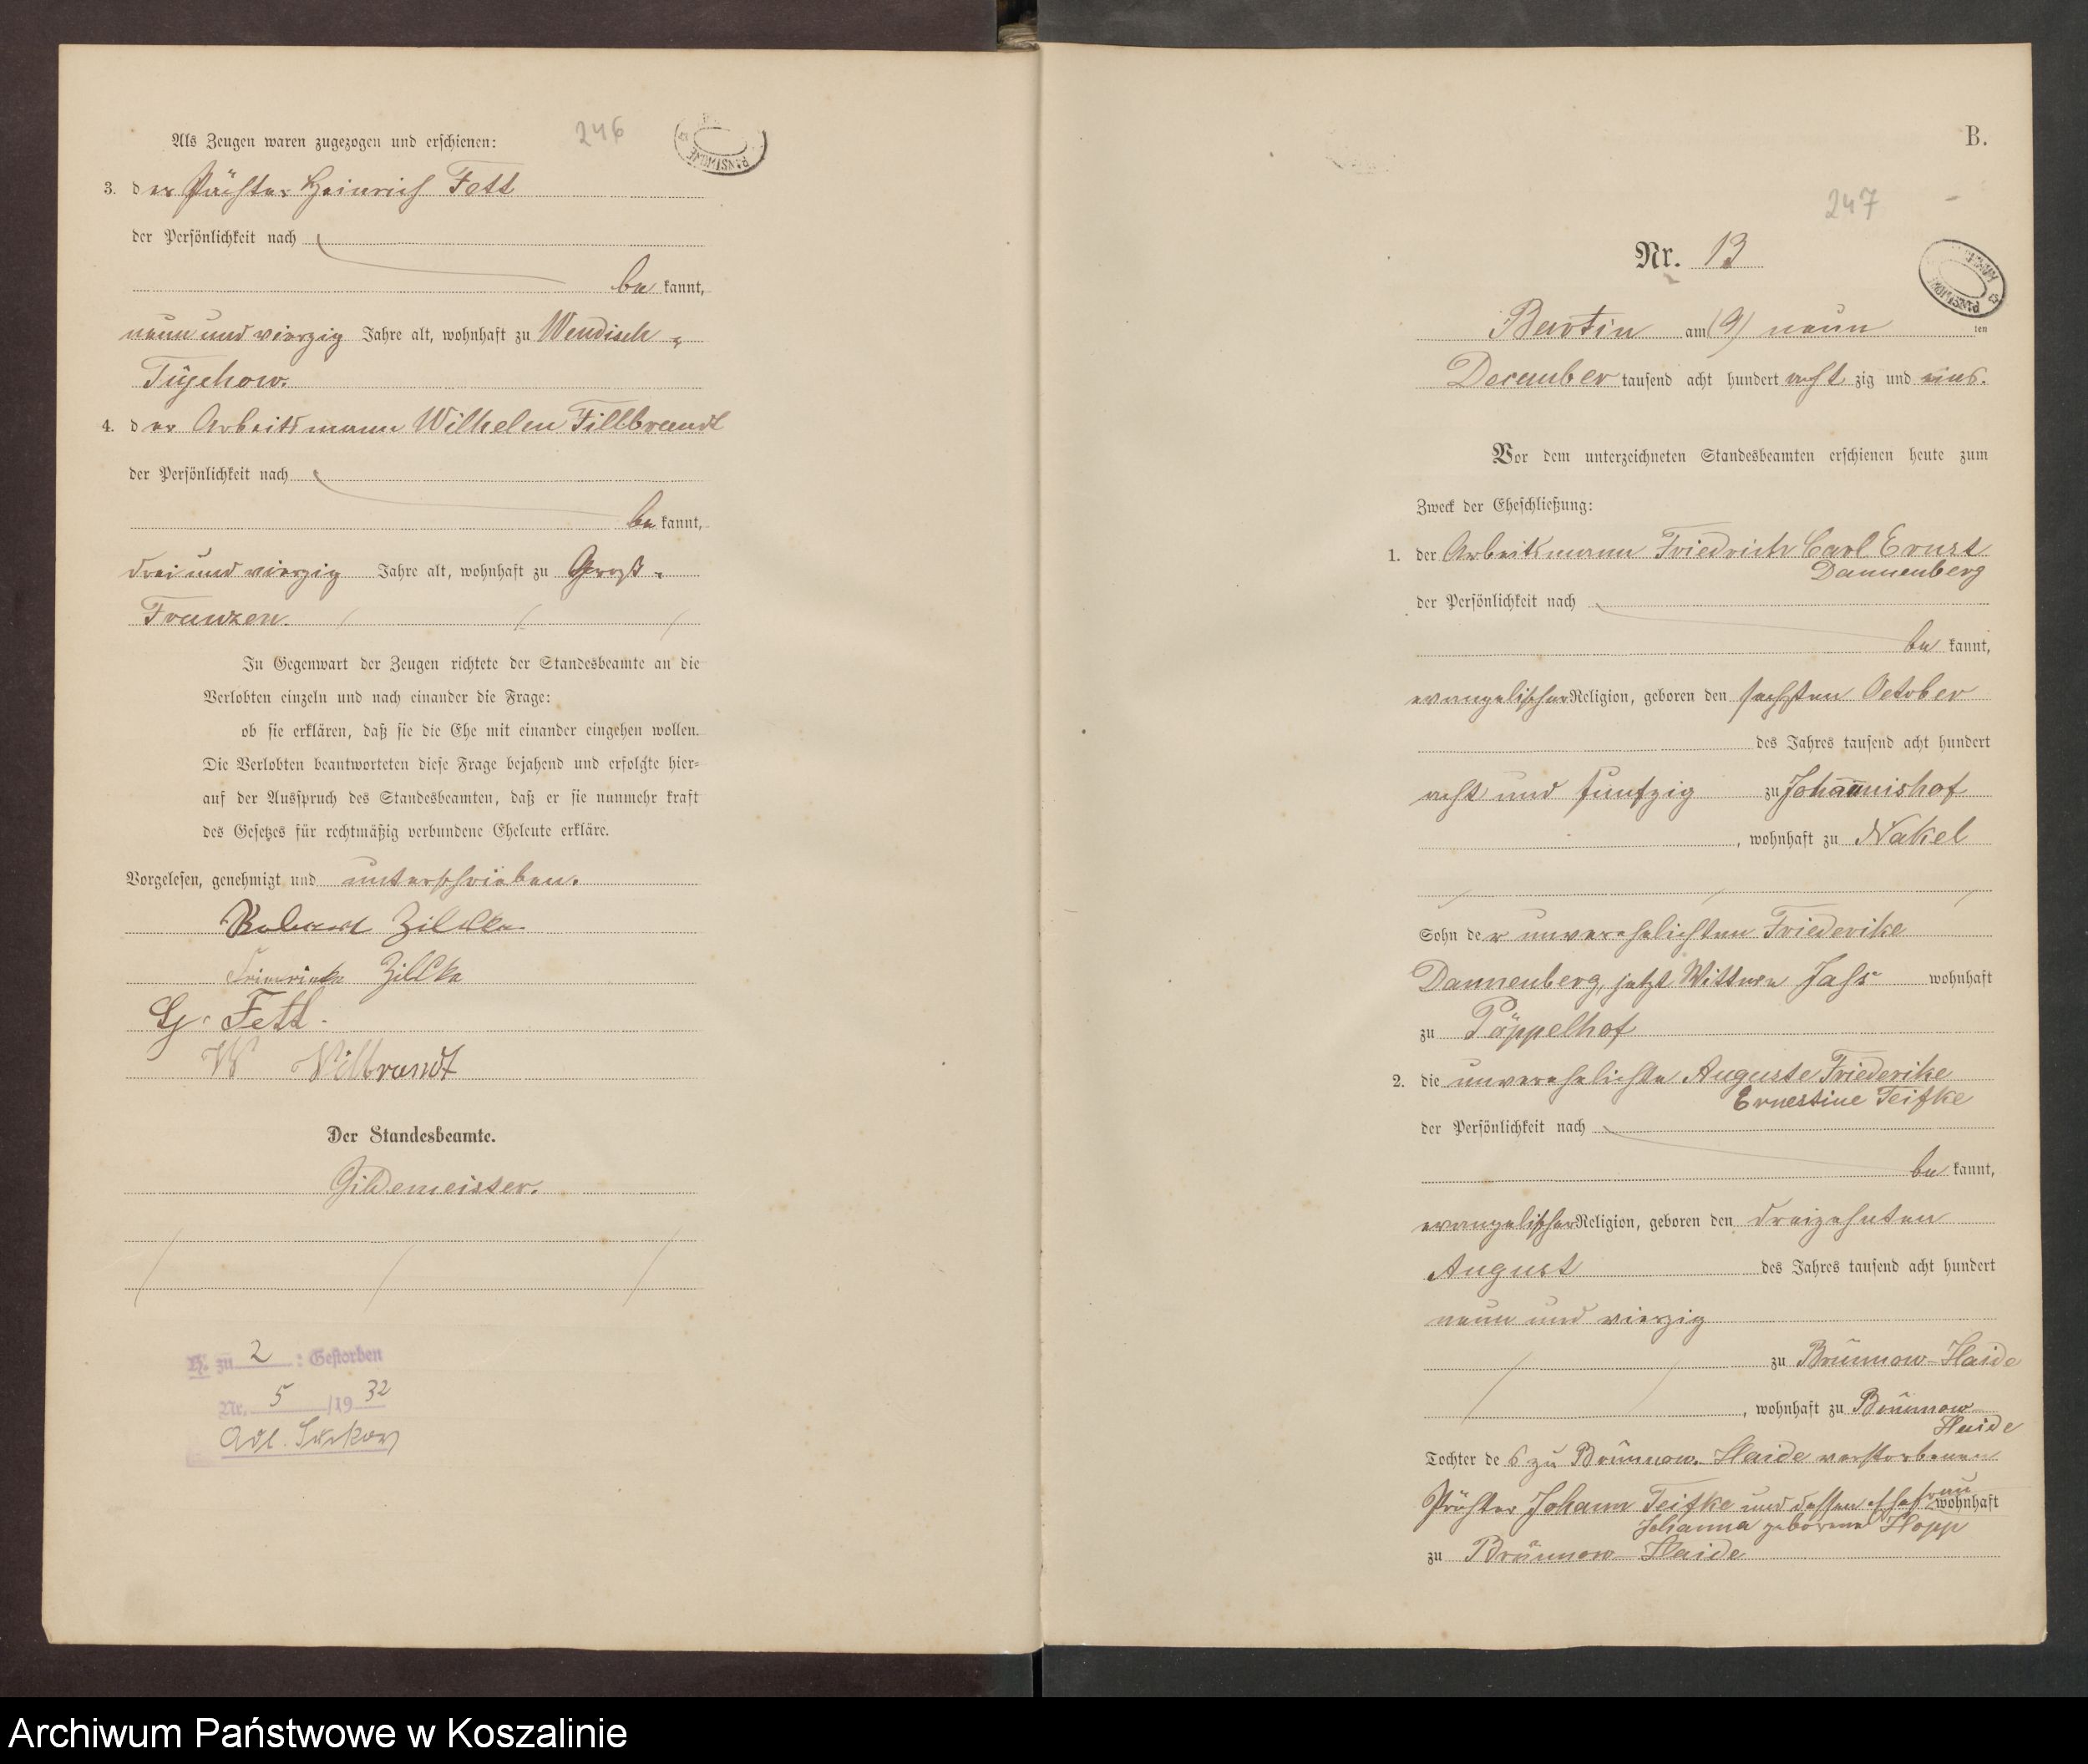 246
Als Zeugen waren zugezogen und erschienen:
3. der Pächter Heinrich Fett
der Persönlichkeit nach
be kannt,
neun und vierzig Jahre alt, wohnhaft zu Wendisch-
Tychow.
4. der Arbeitsmann Wilhelm Fillbrandt
der Persönlichkeit nach
be kannt,
drei und vierzig Jahre alt, wohnhaft zu Groß-
Franzen.
In Gegenwart der Zeugen richtete der Standesbeamte an die
Verlobten einzeln und nach einander die Frage:
ob sie erklären, daß sie die Ehe mit einander eingehen wollen.
Die Verlobten beantworteten diese Frage bejahend und erfolgte hier-
auf der Ausspruch des Standesbeamten, daß er sie nunmehr kraft
des Gesetzes für rechtmäßig verbundene Eheleute erkläre.
Vorgelesen, genehmigt und unterschrieben.
Zillke
Zillke
H. Fett.
W Villbrandt
Der Standesbeamte.
Gildemeister.
H. zu 2 : Gestorben
Nr. 5 /1932
Adl.
B.
247
Nr. 13
Bartin am (9) neun ten
December tausend acht hundert acht zig und eins.
Vor dem unterzeichneten Standesbeamten erschienen heute zum
Zweck der Eheschließung:
1. der Arbeitsmann Friedrich Carl Ernst
Dannenberg
der Persönlichkeit nach
be kannt,
evangelischer Religion, geboren den sechsten October
des Jahres tausend acht hundert
acht und fünfzig zu Johannishof
, wohnhaft zu Nakel
Sohn der unverehelichten Friederike
Dannenberg, jetzt Wittwe Jahs wohnhaft
zu Pöppelhof
2. die unverehelichte Auguste Friederike
Ernestine Teifke
der Persönlichkeit nach
be kannt,
evangelischer Religion, geboren den dreizehnten
August des Jahres tausend acht hundert
neun und vierzig
zu Brünnow-Haide
, wohnhaft zu Brünnow
Haide
Tochter des zu Brünnow-Haide verstorbenen
Pächter Johann Teifke und dessen Ehefrau wohnhaft
Johanna geborene Hopp
zu Brünnow-Haide
Archiwum Państwowe w Koszalinie